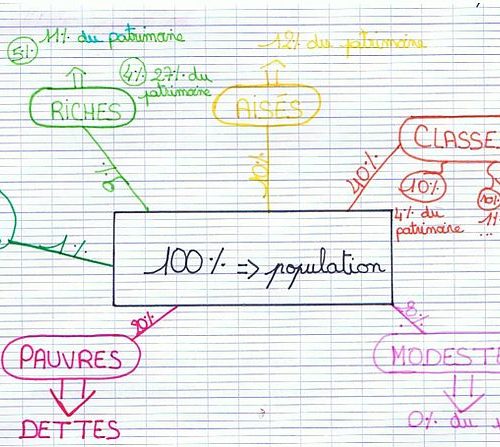 11% du patrimoine
5%
12% du patrimoine
4% 27% du
patrimoine
RICHES
AISÉS
CLASSE
10%
40%
10%
10%
4% du
patrimoine
1%
...
1%
100% => population
PAUVRES
MODEST
DETTES
0% du